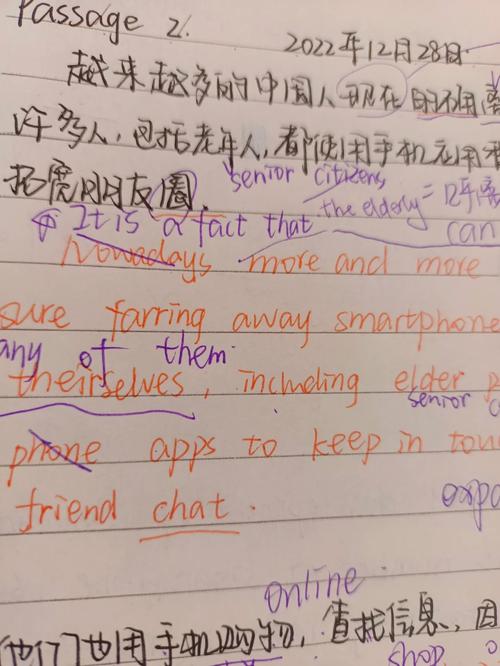 Passage 2.
2022年12月28日.
越来越多的中国人现在的离
许多人, 包括老年人, 都使用手机应用
拓宽朋友圈.
senior citizens
the elderly =
It is a fact that
can
Nowadays more and more
sure farring away smartphone
any of them
theirselves, including elder p
senior c
phone apps to keep in touc
friend chat.
expa
online
他们也用手机购物, 查找信息, 因
shop o